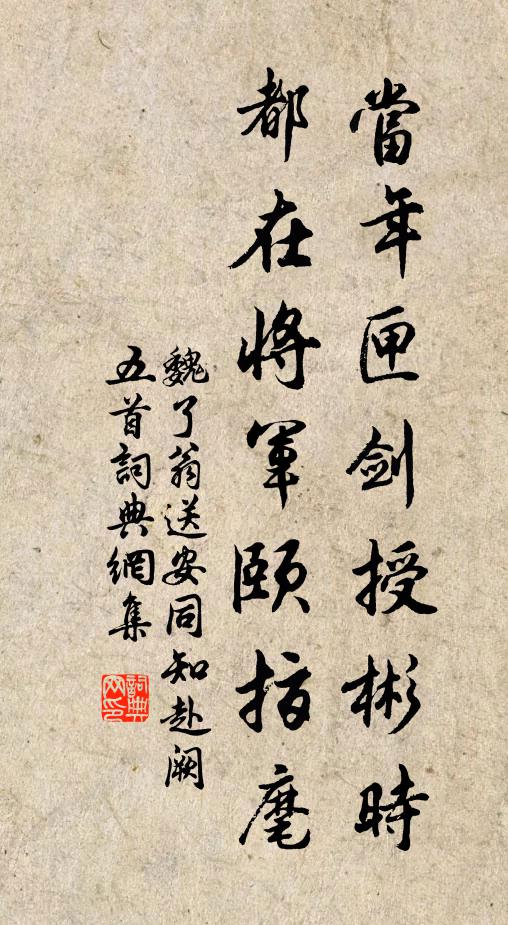 當年匣劍授彬時
都在將軍頤指麾
魏了翁送安同知赴闕
五首詞典網集
詞典
网印